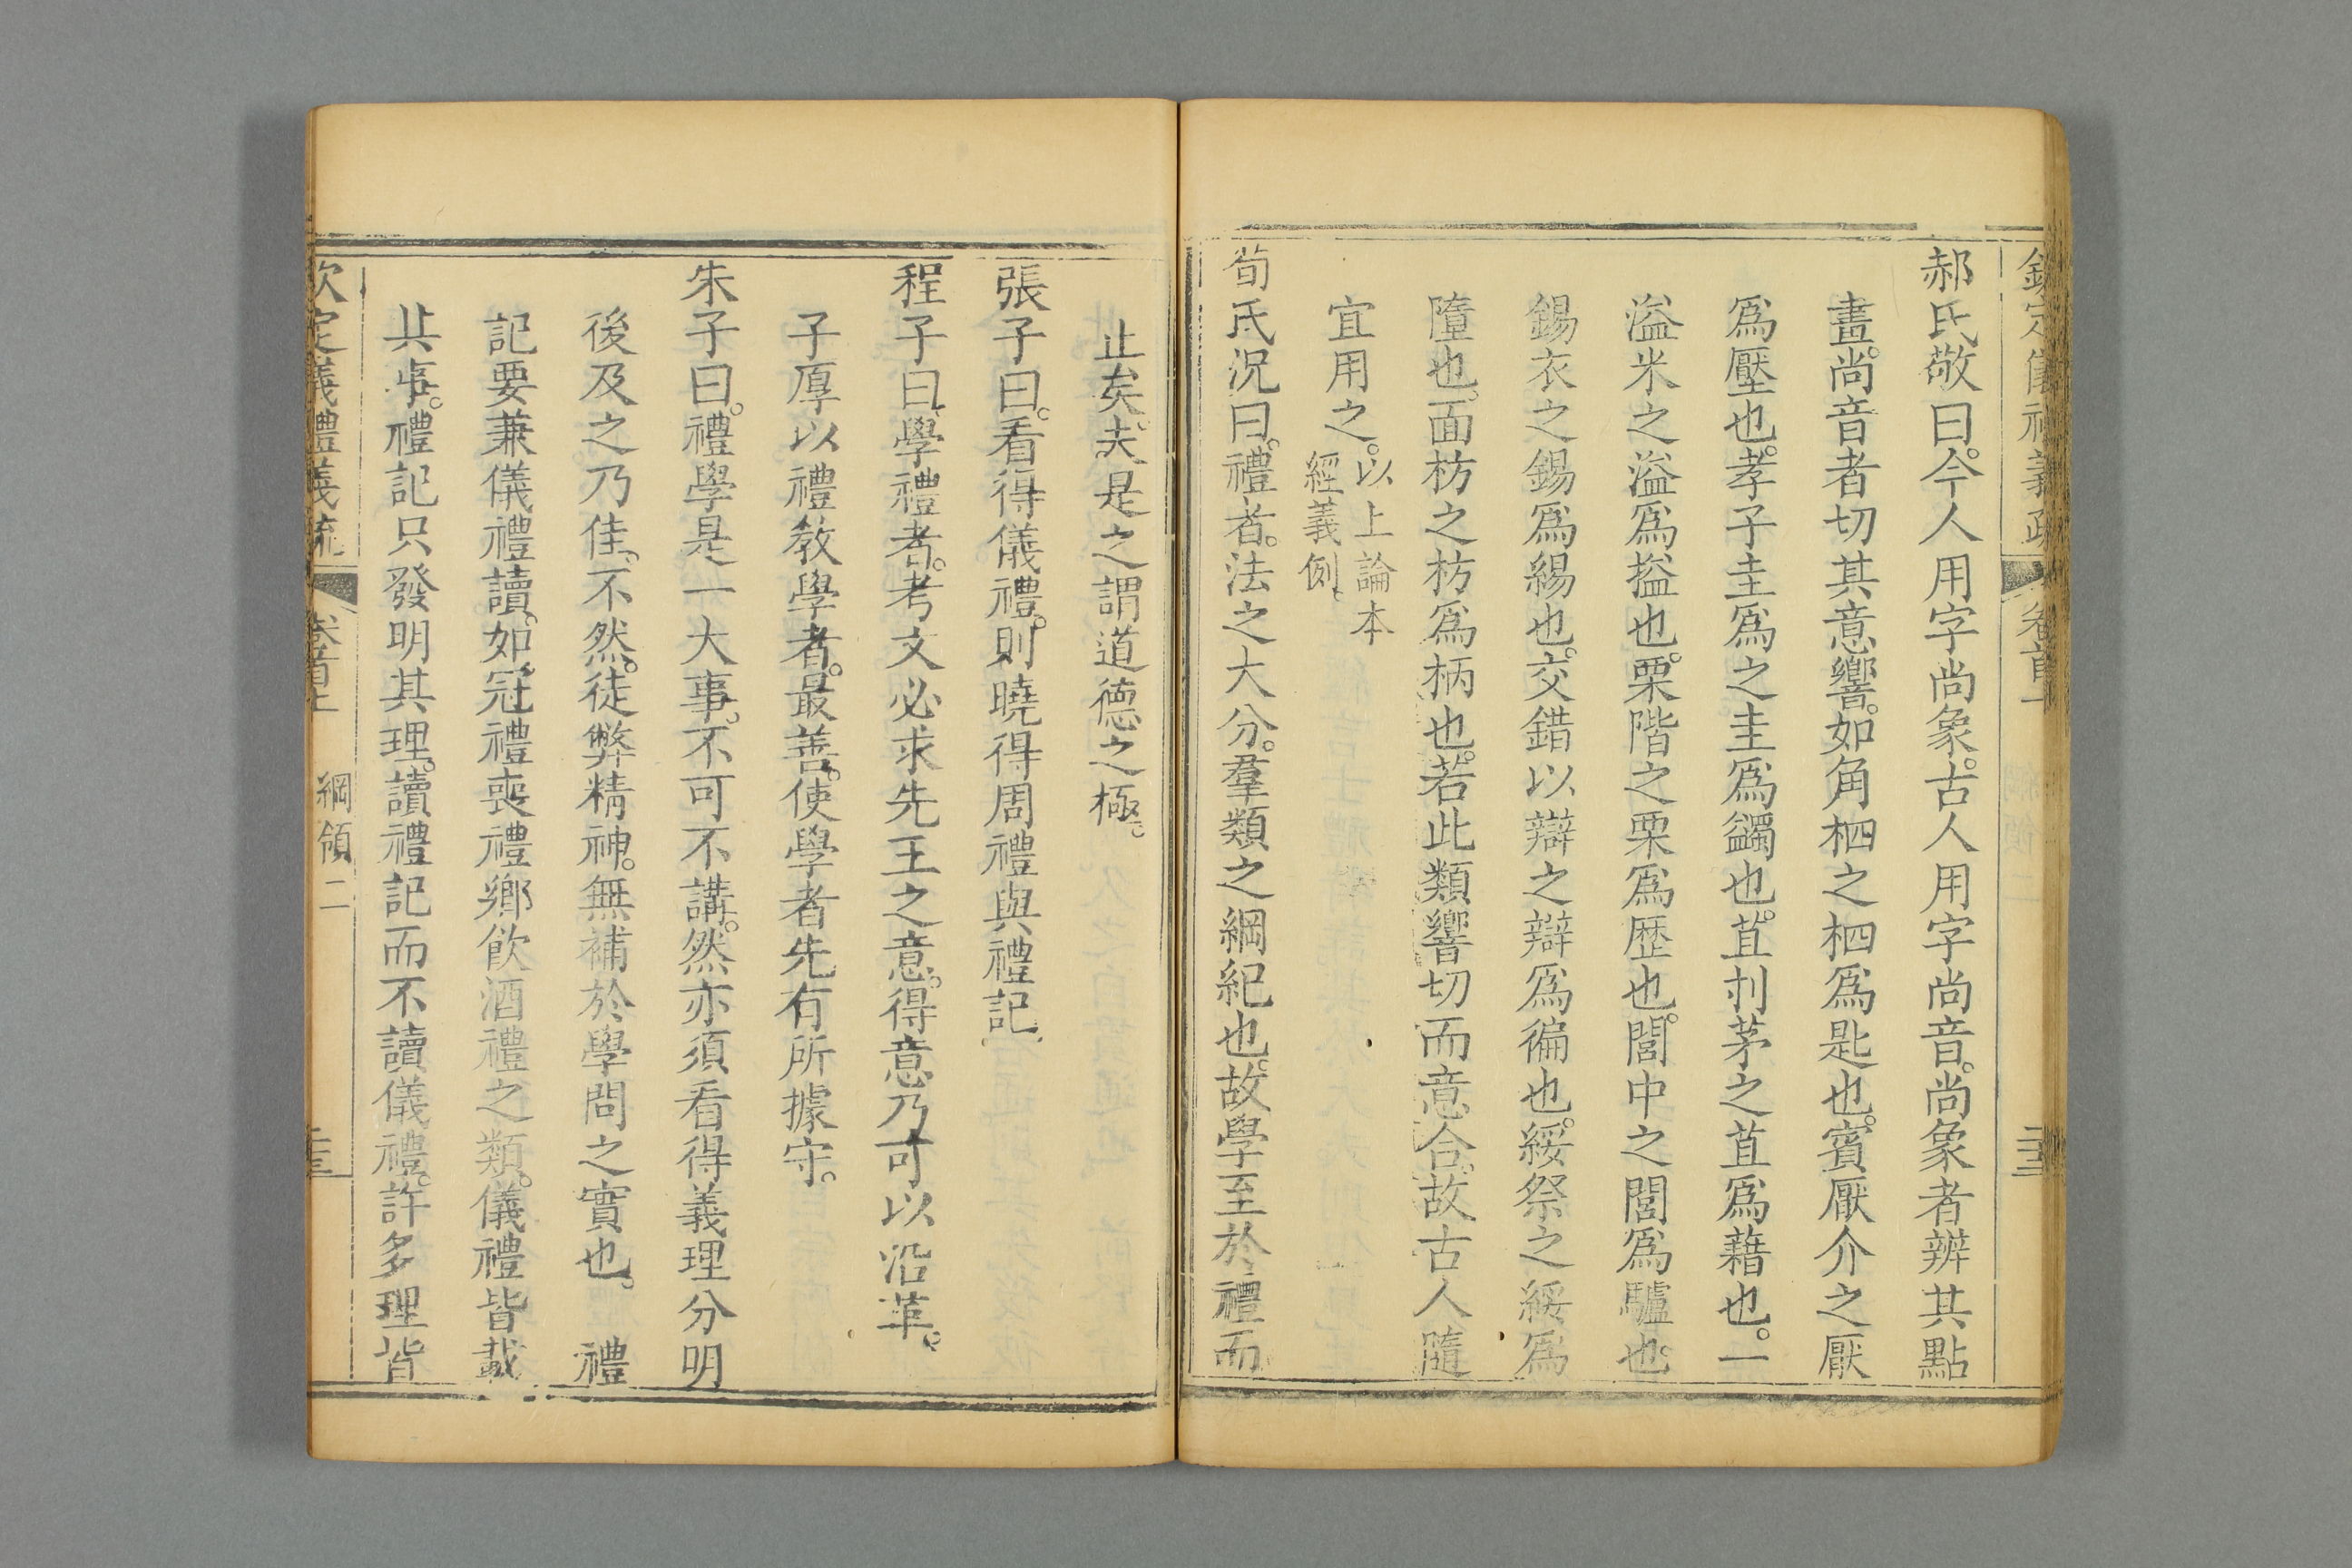 欽定儀禮義疏 卷首上 綱領二
郝氏敬曰。今人用字尚象。古人用字尚音。尚象者辨其點
畫。尚音者切其意響。如角柶之柶爲匙也。賓厭介之厭
爲壓也。孝子圭爲之圭爲蠲也。苴刌茅之苴爲藉也。一
溢米之溢爲搤也。栗階之栗爲歴也。閭中之閭爲驢也。
錫衣之錫爲緆也。交錯以辯之辯爲徧也。綏祭之綏爲
墮也。面枋之枋爲柄也。若此類響切而意合。故古人隨
宜用之。以上論本
經義例。
荀氏況曰。禮者。法之大分。羣類之綱紀也。故學至於禮而
止矣。夫是之謂道德之極。
張子曰。看得儀禮。則曉得周禮與禮記。
程子曰。學禮者。考文必求先王之意。得意乃可以沿革。
子厚以禮教學者。最善。使學者先有所據守。
朱子曰。禮學是一大事。不可不講。然亦須看得義理分明
後及之乃佳。不然。徒弊精神。無補於學問之實也。 禮
記要兼儀禮讀。如冠禮喪禮鄉飲酒禮之類。儀禮皆載
其事。禮記只發明其理。讀禮記而不讀儀禮。許多理皆
欽定儀禮義疏 卷首上 綱領二